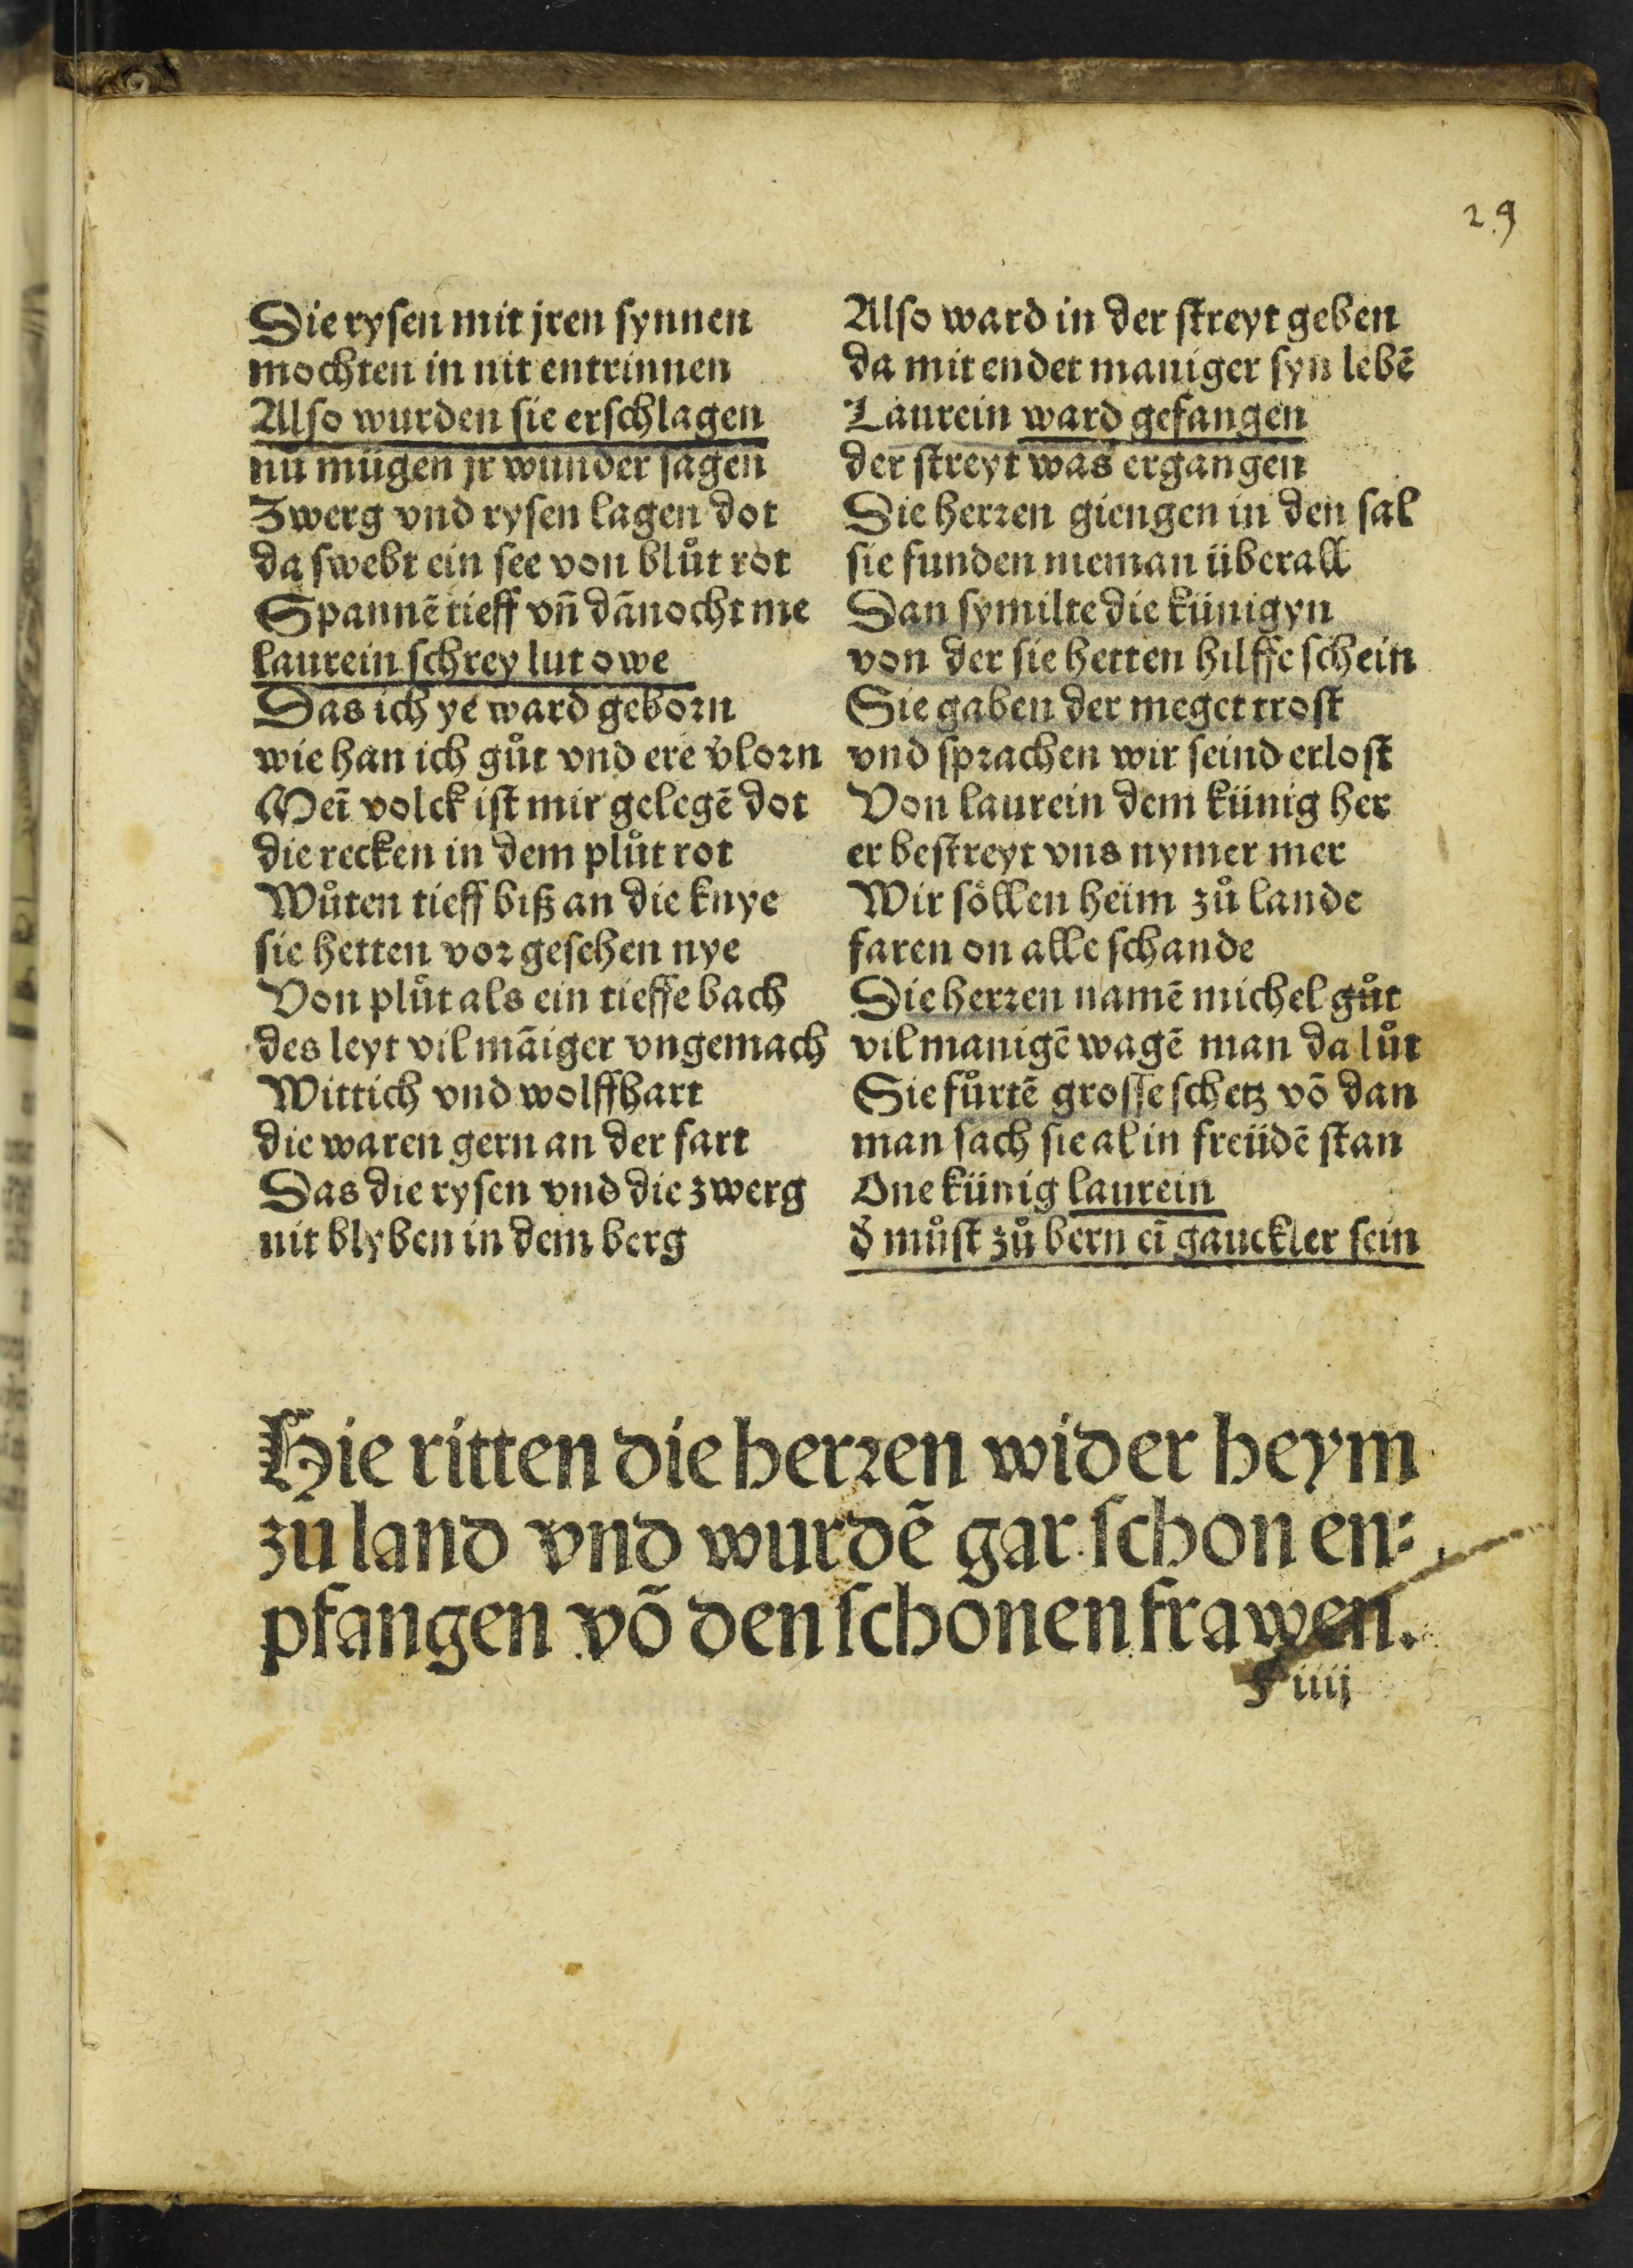 29
Die rysen mit jren synnen
mochten in nit entrinnen
Also wurden sie erschlagen
nu mügen jr wunder sagen
Zwerg vnd rysen lagen dot
da swebt ein see von blůt rot
Spannē tieff vñ dānocht me
laurein schrey lut owe
Das ich ye ward geborn
wie han ich gůt vnd ere v̄lorn
Meī volck ist mir gelegē dot
die recken in dem plůt rot
Wůten tieff biß an die knye
sie hetten vor gesehen nye
Von plůt als ein tieffe bach
des leyt vil māiger vngemach
Wittich vnd wolffhart
die waren gern an der fart
Das die rysen vnd die zwerg
nit blyben in dem berg
Also ward in der streyt geben
da mit endet maniger syn lebē
Laurein ward gefangen
der streyt was ergangen
Die herren giengen in den sal
sie funden nieman überall
Dan symilte die künigyn
von der sie hetten hilffe schein
Sie gaben der meget trost
vnd sprachen wir seind erlost
Von laurein dem künig her
er bestreyt vns nymer mer
Wir söllen heim zů lande
faren on alle schande
Die herren namē michel gůt
vil manigē wagē man da lůt
Sie fůrtē grosse schetz vō dan
man sach sie al in freüdē stan
One künig laurein
d̄ můst zů bern eī gauckler sein
Hie ritten die herren wider heym
zu land vnd wurdē gar schon en⸗
pfangen võ den schonen frawen.
F iiij